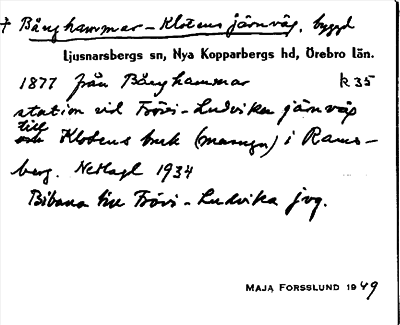 † Bånghammar - Klotens järnväg, byggd
Ljusnarsbergs sn, Nya Kopparbergs hd, Örebro län.
1877 från Bånghammar R 35
station vid Frövi - Ludvika järnväg
till
om Klotens bruk (masugn) i Rams-
berg. Nedlagd 1934
Bibana till Frövi - Ludvika jvg.
MAJA FORSSLUND 1949